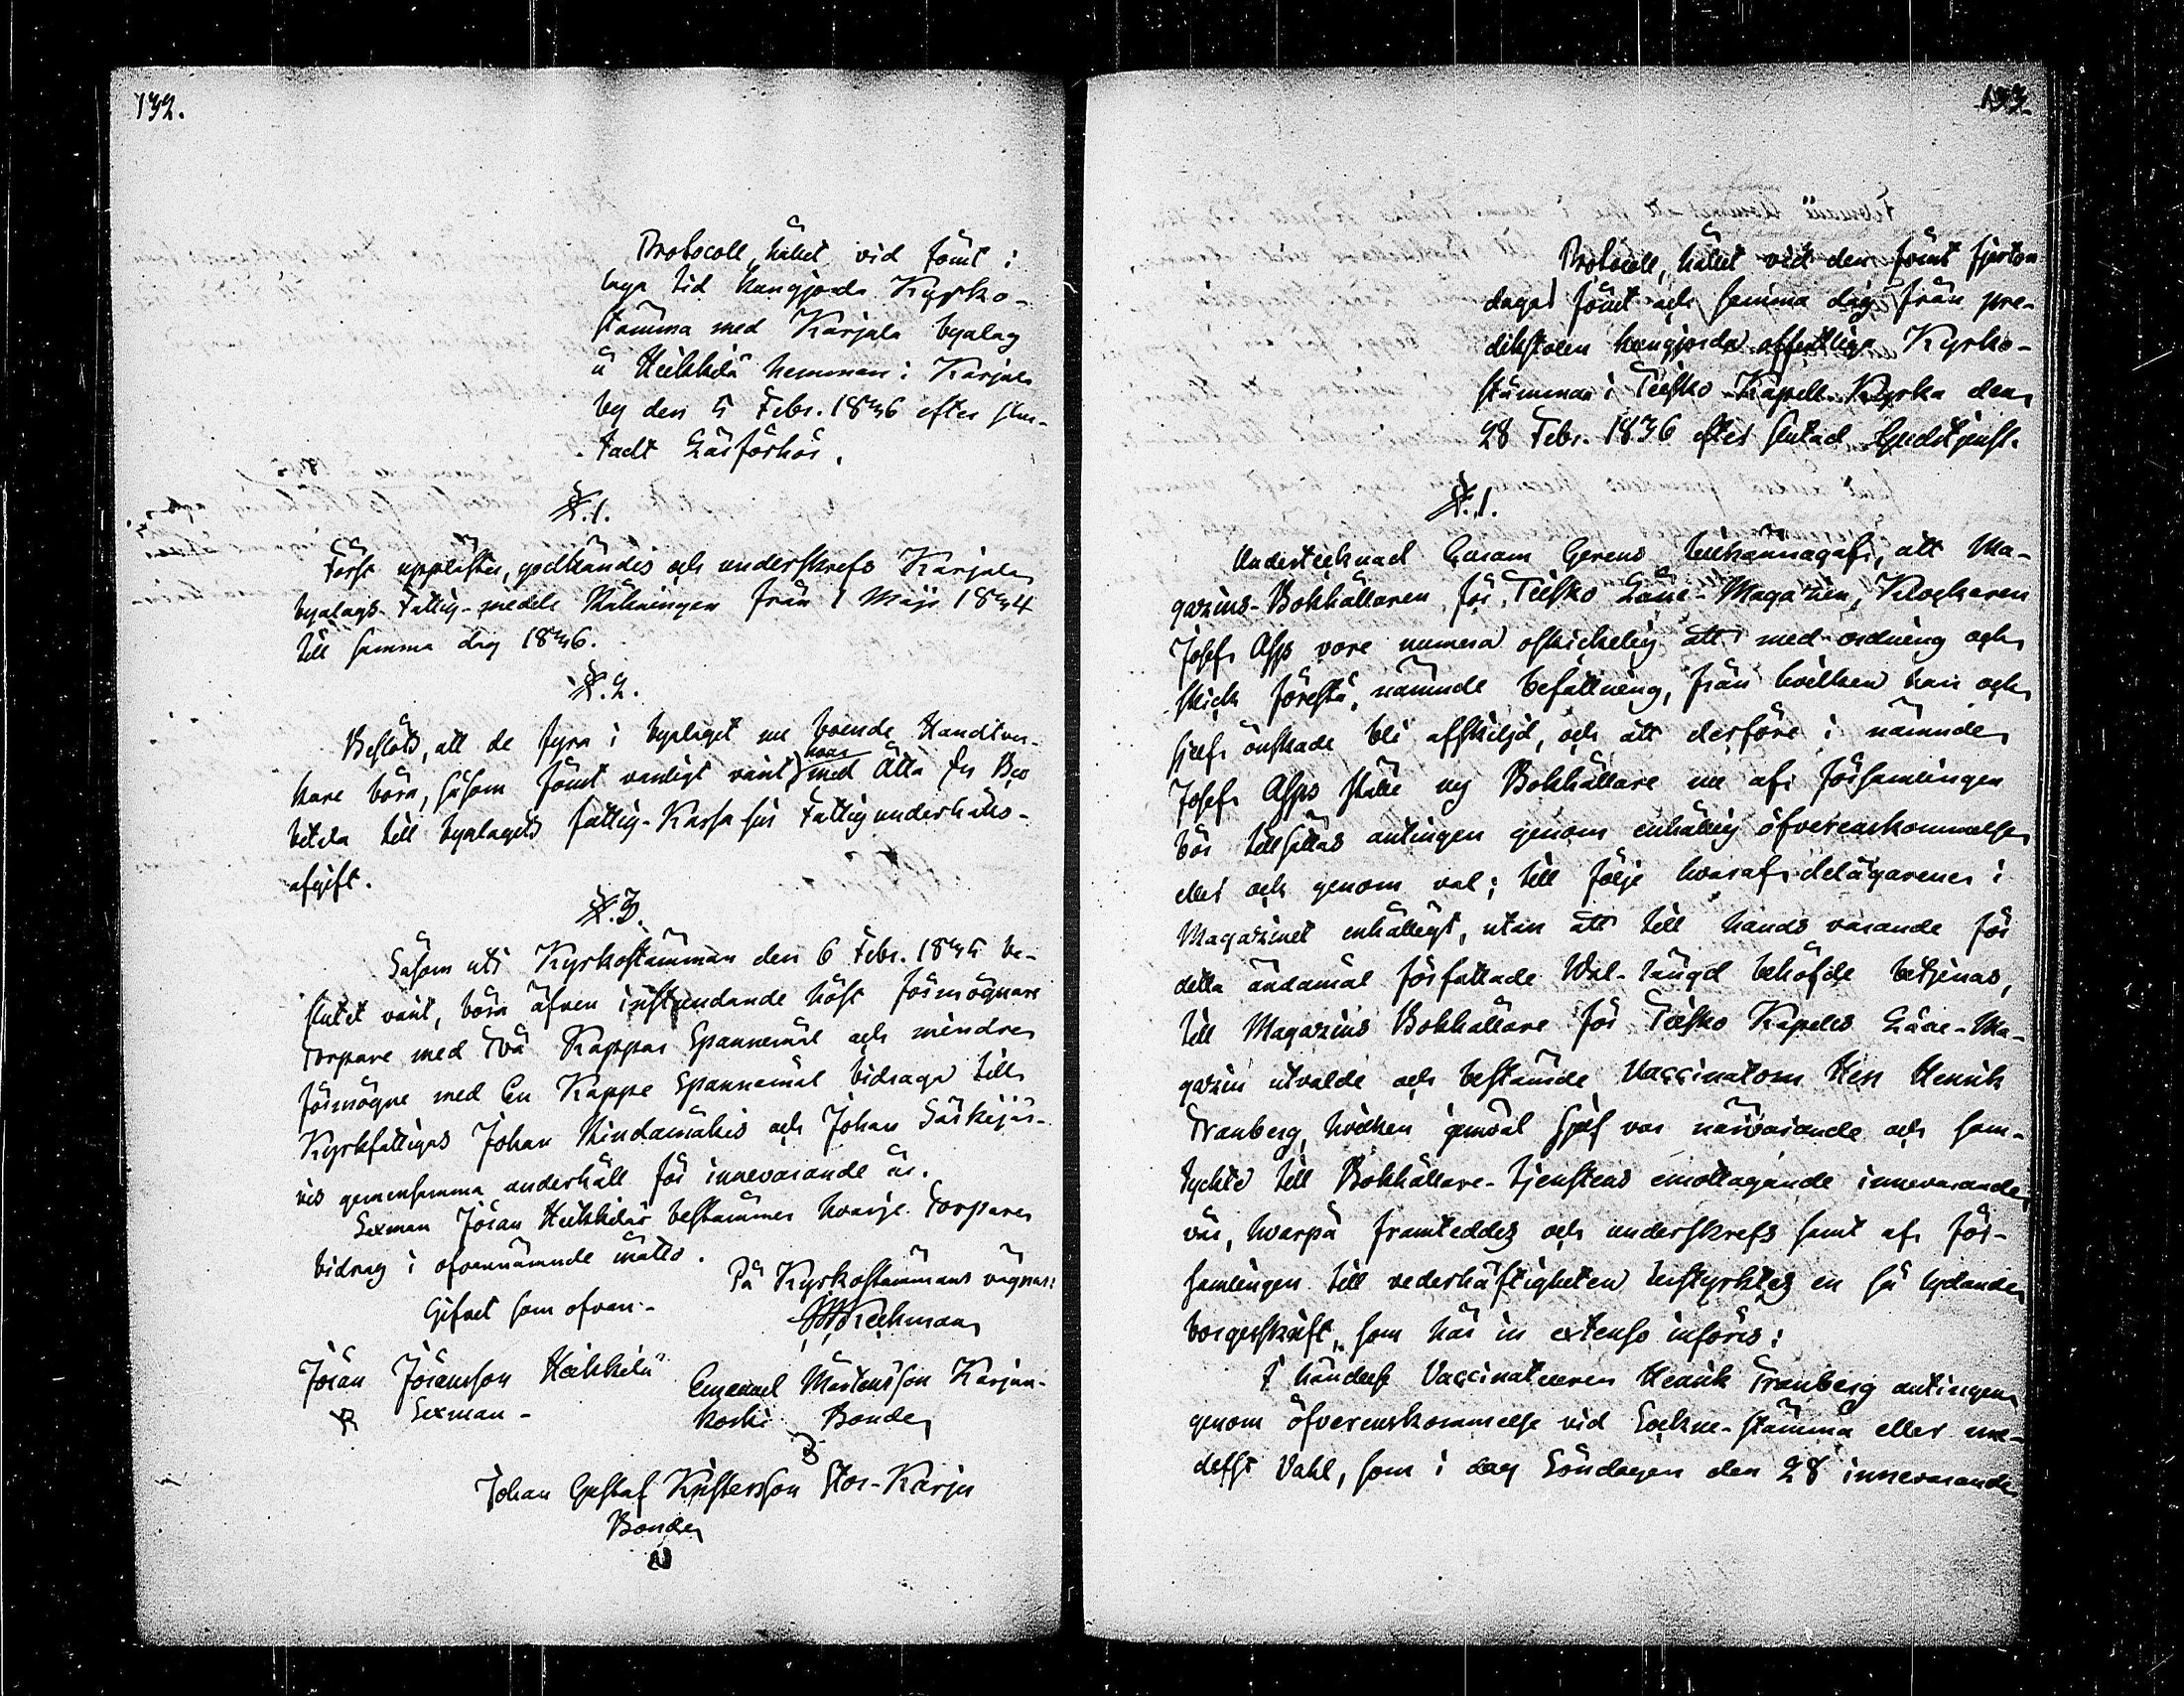 132.
Protocoll, hållet vid sömt i
laga tid kungjorda Kyrko-
stämma med Karjala byalag
å Heikkilä hemman i Karjala
by den 5 Febr. 1836 efter slu-
tadt Läsförhör.
§. 1.
Först upplästes, godkändes och underskrefs Karjala
byalags Fattig-medels Räkningen från 1 Maji 1834
till samma dag 1836.
§. 2.
Beslöts, att de fyra i byalaget nu boende Handtver-
kare böra, såsom sömt vanligt varit, hvar
med Åtta
betala till byalagets fattig-Kassa sin Fattigunderhålls-
afgift.
§. 3.
Såsom uti Kyrkostämman den 6 Febr. 1835 be-
slutet varit, böra äfven instundande höst förmögnare
Torpare med Två Kappar Spannemål och mindre
förmögne med En Kappe Spannemål bidraga till
Kyrkfattigas Johan Rindamäkis och Johan Särkijär-
vis gemensamma underhåll för innevarande år.
Sexman Jöran Heikkilä bestämmer hvarje Torpares
bidrag i ofvannämnde måtto.
Gifvet som ofvan.-
På Kyrkostämmans vägnar:
Jöran Jöransson Heikkilä
Sexman-
Emanuel Mårtensson Karjan-
koski Bonde
Johan Gustaf Kristersson Stor-Karju
Bonde
133.
Protocoll, hållet vid den sömt fjorton
dagar sömt och samma dag från pre-
dikstolen kungjorda offentliga Kyrko-
stämman i Teisko Kapell-Kyrka den
28 Febr. 1836 efter slutad Gudstjenst.
§. 1.
Undertecknad Curam Gerens tillkännagaf, att Ma-
gazins-Bokhållaren för Teisko Låne-Magazin, Klockaren
Josef Alfs vore numera oskickelig att med ordning och
skick förestå nämnde befattning, från hvilken han och
sjelf önskade bli afskiljd, och att derföre i nämnde
Josef Alfs ställe ny Bokhållare nu af församlingen
bör tillsättas antingen genom enhällig öfverenskommelse
eller och genom val; till följe hvaraf delägarene i
Magazinet enhälligt, utan att till hands varande för
detta ändamål författade Wal-längd behöfde betjenas,
till Magazins Bokhållare för Teisko Kapells Låne-Ma-
gazin utvalde och bestämde Vaccinatorn Herr Henrik
Tranberg, hvilken jemväl sjelf var närvarande och sam-
tyckte till Bokhållare-tjenstens emottagande innevarande
vår, hvarpå framteddes och underskrefs samt af för-
samlingen till vederhäftigheten bestyrktes en så lydande
borgesskrift, som här in extenso införes:
I händelse Vaccinateuren Henrik Tranberg antingen
genom öfverenskommelse vid Sockne-stämma eller me-
delst Vahl, som i dag Söndagen den 28 innevarande